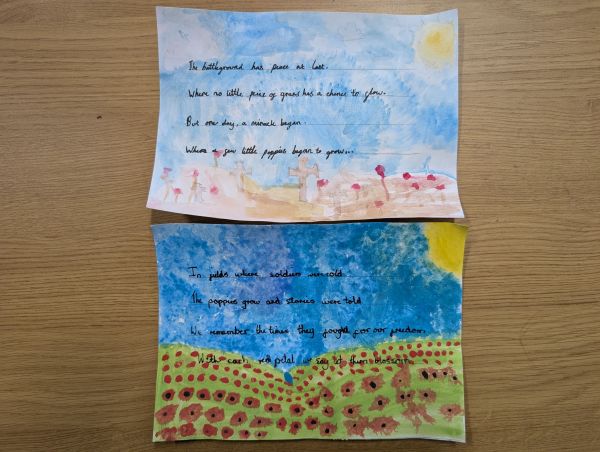 The battleground has peace at last.
Where no little piece of grass has a chance to glow.
But one day, a miracle began.
Where a few little poppies began to grow...
In fields where soldiers were cold
The poppies grow and stories were told
We remember the times they fought for our freedom.
With each red petal we say let them blossom.